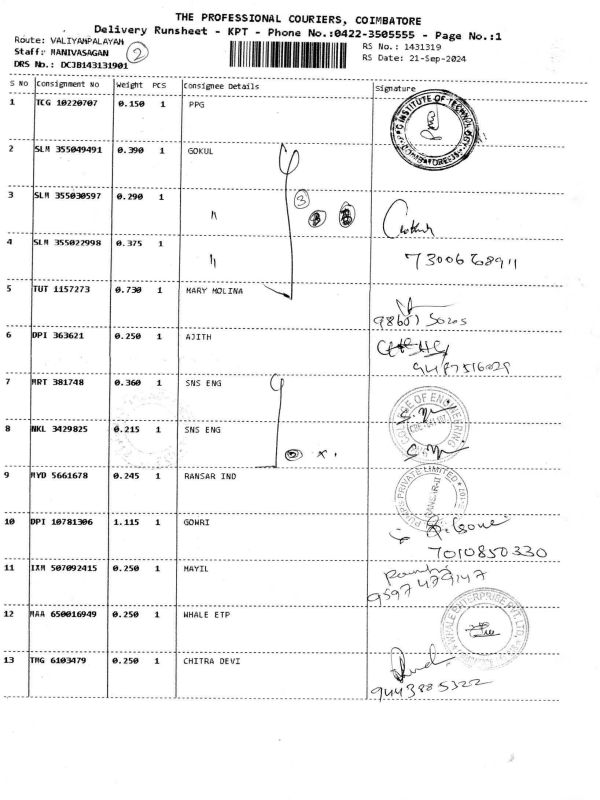 THE PROFESSIONAL COURIERS, COIMBATORE
Delivery Runsheet - KPT - Phone No.:0422-3505555 - Page No.:1
Route: VALIYAMPALAYAM
RS No.: 1431319
Staff: MANIVASAGAN 2
RS Date: 21-Sep-2024
DRS No.: DCJB143131901
S NO Consignment No Weight PCS Consignee Details Signature
1 TCG 10220707 0.150 1 PPG
PPG INSTITUTE OF TECHNOLOGY
2 SLM 355049491 0.390 1 GOKUL
3 SLM 355030597 0.290 1 "
3
4 SLM 355022998 0.375 1 "
5 TUT 1157273 0.730 1 MARY MOLINA
6 DPI 363621 0.250 1 AJITH
7 MRT 381748 0.360 1 SNS ENG
COLLEGE OF ENGINEERING
8 NKL 3429825 0.215 1 SNS ENG
9 MYD 5661678 0.245 1 RANSAR IND
PRIVATE LIMITED
10 DPI 10781306 1.115 1 GOWRI
7010850330
11 IXM 507092415 0.250 1 MAYIL
9597479147
12 MAA 650016949 0.250 1 WHALE ETP
WHALE ENTERPRISE PVT LTD
13 TMG 6103479 0.250 1 CHITRA DEVI
9443885322